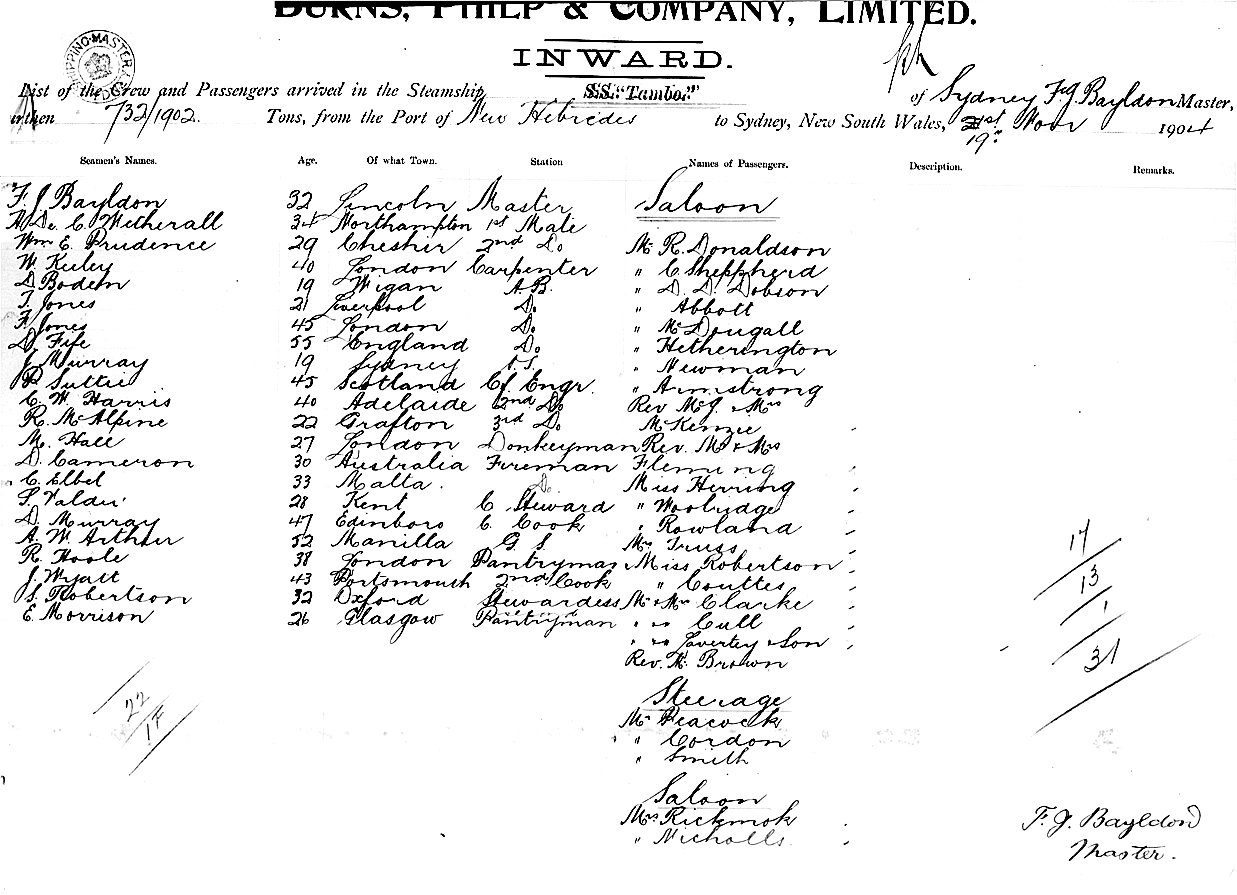 BURNS, PHILP & COMPANY, LIMITED.
INWARD.
SHIPPING MASTER
List of the Crew and Passengers arrived in the Steamship S.S. "Tambo." of Sydney F. J. Bayldon Master,
Burthen 732/1902. Tons, from the Port of New Hebrides to Sydney, New South Wales, 21st Novr 1904
19th
Seamen's Names. Age. Of what Town. Station Names of Passengers. Description. Remarks.
F. J Bayldon 32 Lincoln Master Saloon
A De. C. Wetherall 34 Northampton 1st Mate
Wm E. Prudence 29 Cheshir 2nd Do Mr R. Donaldson
W. Keeley 40 London Carpenter " C. Sheppherd
D. Boden 19 Wigan A.B. " D. D. Dobson
T. Jones 21 Liverpool Do " Abbott
F. Jones 45 London Do " McDougall
D. Fife 55 England Do " Hetherington
J. Murray 19 Sydney O.S. " Newman
P. Suttie 45 Scotland Cf. Engr. " Armstrong
C. W. Harris 40 Adelaide 2nd Do Rev Mr & Mrs
R. McAlpine 22 Grafton 3rd Do McKenzie
M. Hall 27 London Donkeyman Rev. Mr & Mrs
D. Cameron 30 Australia Fireman Fleming
C. Elbel 33 Malta. Do Miss Herring
S. Valder 28 Kent C Steward " Woolridge
D. Murray 47 Edinboro C. Cook " Rowland
A. W. Arthur 52 Manilla G. S. Mrs Truss
R. Hoole 38 London Pantryman Miss Robertson
J. Wyatt 43 Portsmouth 2nd Cook " Couttes
S. Robertson 32 Oxford Stewardess Mr & Mrs Clarke
E. Morrison 26 Glasgow Pantryman " " " Cull
" " " Lavertey & Son
Rev. M. Brown
Steerage
Mr Peacock
" Gordon
" Smith
Saloon
Mrs Rickmok
" Nicholls
22
17
17
13
1
31
F. J. Bayldon
Master.